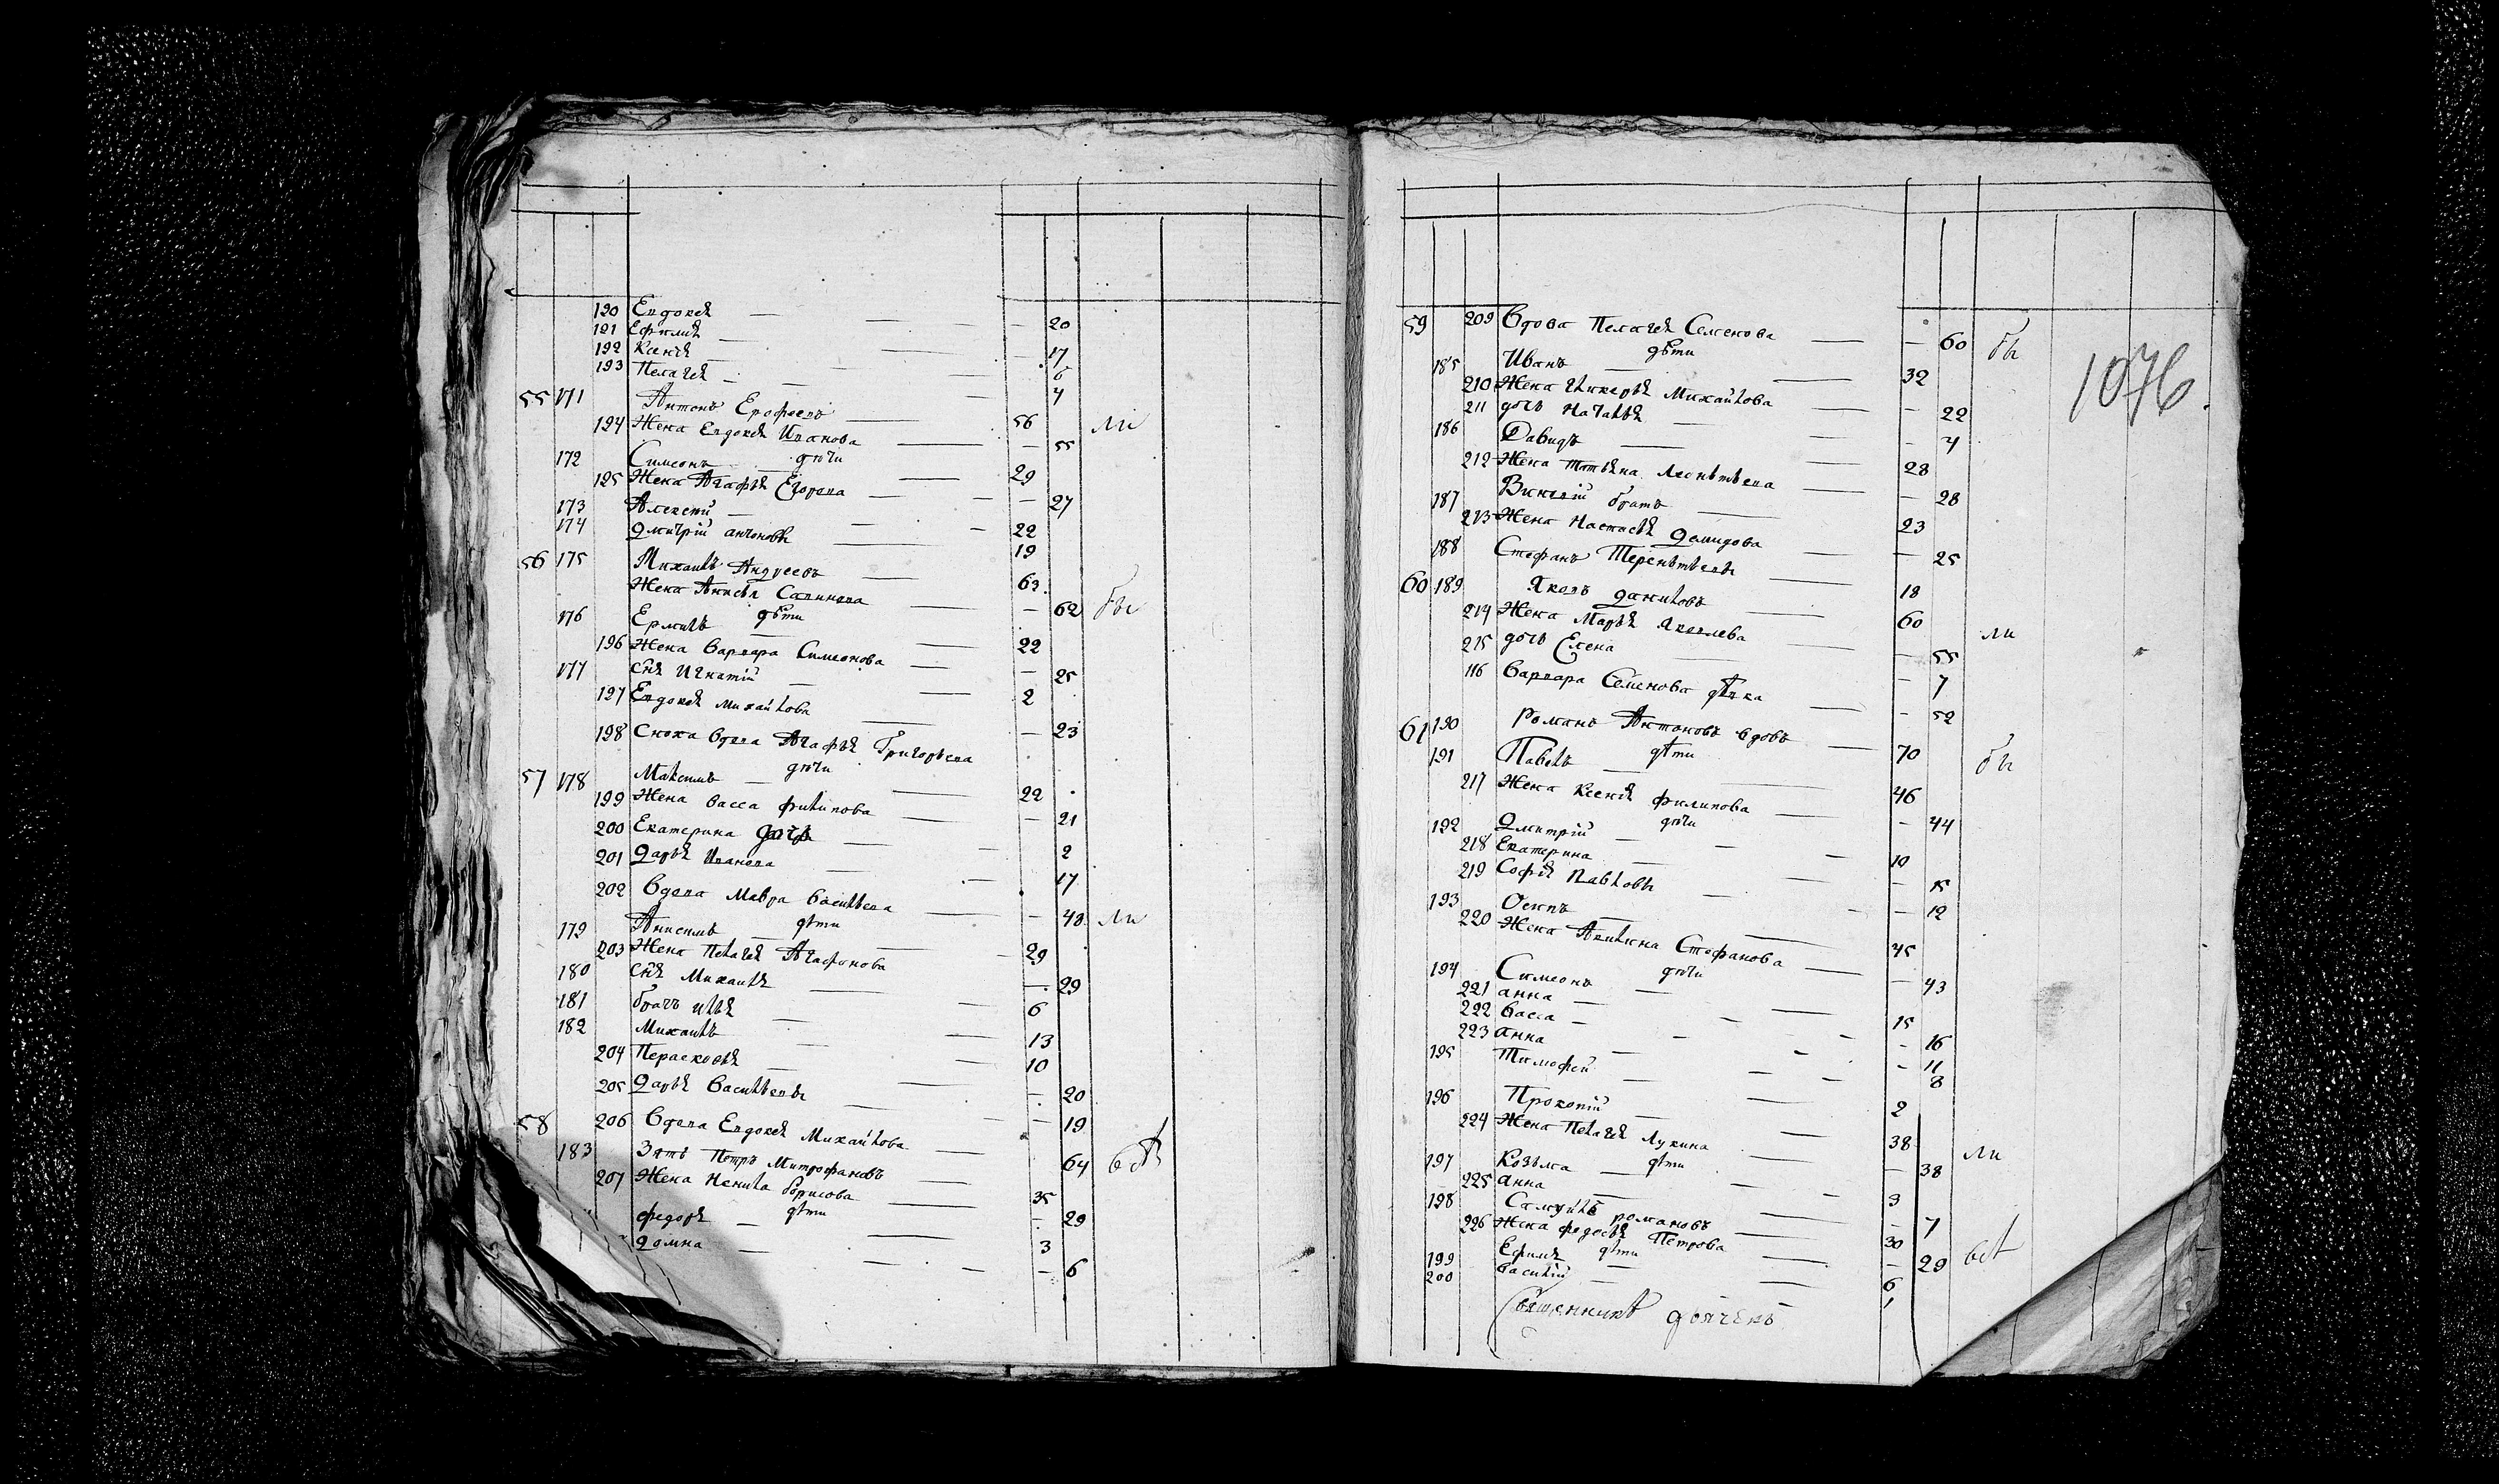 190 Евдокея — 20
191 Ефимия — 17
192 Ксения — 6
193 Пелагея — 4
55 171 Антонъ Ерофеевъ — 56 ли
194 Жена Евдокея Иванова — 55
дѣти
172 Симеонъ — 29
195 Жена Агафья Егорова — 27
173 Алексей — 22
174 Дмитрій антоновы — 19
56 175 Михаилъ Андреевъ — 63
Жена Анисья Савинова — 62 бы
дѣти
176 Ермилъ — 22
196 Жена Варвара Симеонова — 25
177 снъ Игнатій — 2
197 Евдокея Михайлова — 23
198 Сноха вдова Агафья Григорьева
дѣти
57 178 Максимъ — 22
199 Жена васса филипова — 21
200 Екатерина дочь — 2
201 Дарья Иванова — 17
202 Вдова Мавра Васильева — 48 ли
дѣти
179 Анисимъ — 29
203 Жена Пелагея Агафонова — 29
180 снъ Михаилъ — 6
181 братъ илья — 13
182 Михаилъ — 10
204 Перасковья — 20
205 Дарья Васильевы — 19
58 206 Вдова Евдокея Михайлова — 64
183 Зять Петръ Митрофановъ — 35
207 Жена Ненила борисова — 29
дѣти
федоръ — 3
Домна — 6
1076
59 209 Вдова Пелагея Семенова — 60 бы
дѣти
185 Иванъ — 32
210 Жена Гликерья Михайлова — 22
211 дочь Наталья — 4
186 Давидъ — 28
212 Жена татьяна Леонтьева — 28
187 братъ — 23
213 Жена Настасья Демидова — 25
188 Стефанъ Терентьевы — 18
60 189 Яковъ даниловъ — 60 ли
214 Жена Марья Яковлева — 55
215 дочь Елена — 7
116 Варвара Семенова дѣвка — 52
61 190 Романъ Антоновъ вдовъ — 70 бы
дѣти
191 Павелъ — 46
217 Жена Ксения филипова — 44
дѣти
192 Дмитрій — 10
218 Екатерина — 15
219 Софья Павловы — 12
193 Осипъ — 45
220 Жена Акилина Стефанова — 43
дѣти
194 Симеонъ — 15
221 анна — 16
222 васса — 11
223 анна — 8
195 Тимофей — 2
196 Прокопій — 38 ли
224 Жена Пелагея Лукина — 38
дѣти
197 Козьма — 3
225 анна — 7
198 Самуилъ романовъ — 30
226 Жена федосья Петрова — 29
дѣти
199 Ефимъ — 6
200 Василій — 1
Священникъ